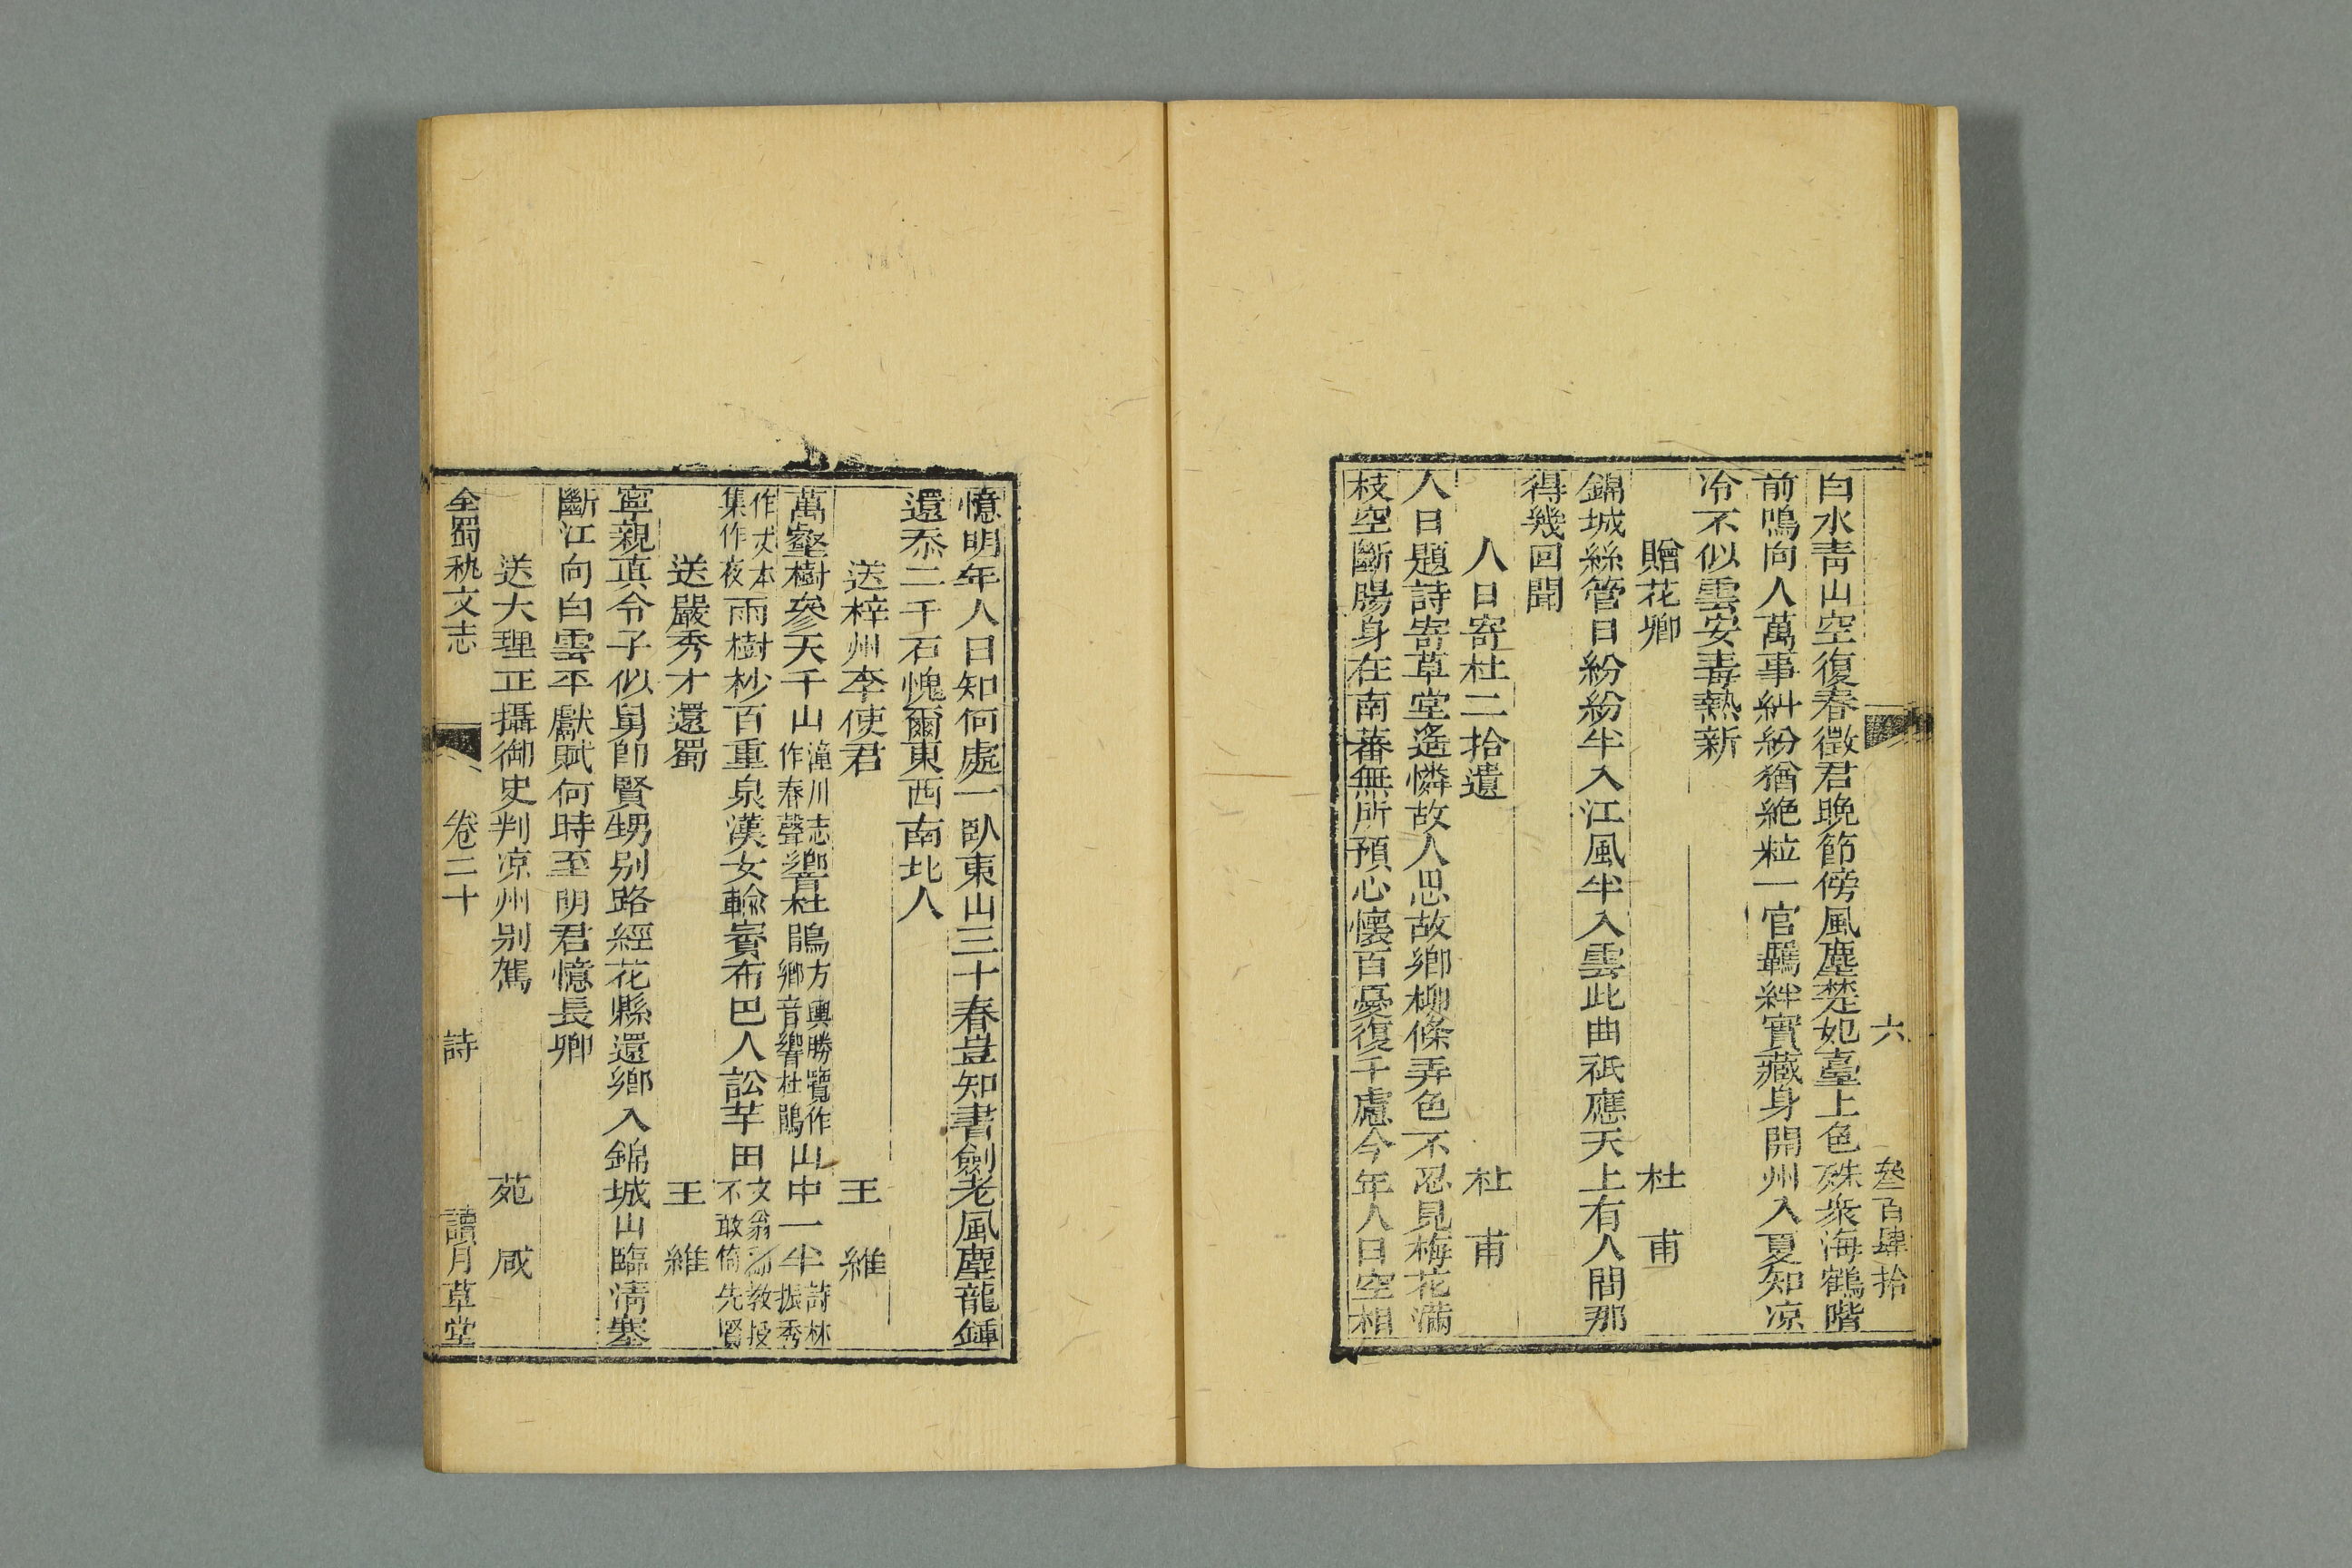 六 叄百肆拾
白水靑山空復春徵君晚節傍風塵楚妃臺上色殊衆海鶴階
前鳴向人萬事糾紛猶絶粒一官羈絆實藏身開州入夏知凉
冷不似雲安毒熱新
贈花卿 杜甫
錦城絲管日紛紛半入江風半入雲此曲祇應天上有人間那
得幾回聞
人日寄杜二拾遺 杜甫
人日題詩寄草堂遙憐故人思故鄉柳條弄色不忍見梅花滿
枝空斷腸身在南蕃無所預心懷百憂復千慮今年人日空相
憶明年人日知何處一臥東山三十春豈知書劍老風塵龍鍾
還忝二千石愧爾東西南北人
送梓州李使君 王維
萬壑樹參天千山潼川志作春聲響杜鵑方輿勝覽作鄉音響杜鵑山中一半詩林振秀
作丈本集作夜雨樹杪百重泉漢女輸賨布巴人訟芋田文翁翻教授不敢倚先賢
送嚴秀才還蜀 王維
寧親真令子似舅卽賢甥别路經花縣還鄉入錦城山臨淸塞
斷江向白雲平獻賦何時至明君憶長卿
送大理正攝御史判凉州别駕 苑咸
全蜀秇文志 卷二十 詩 讀月草堂